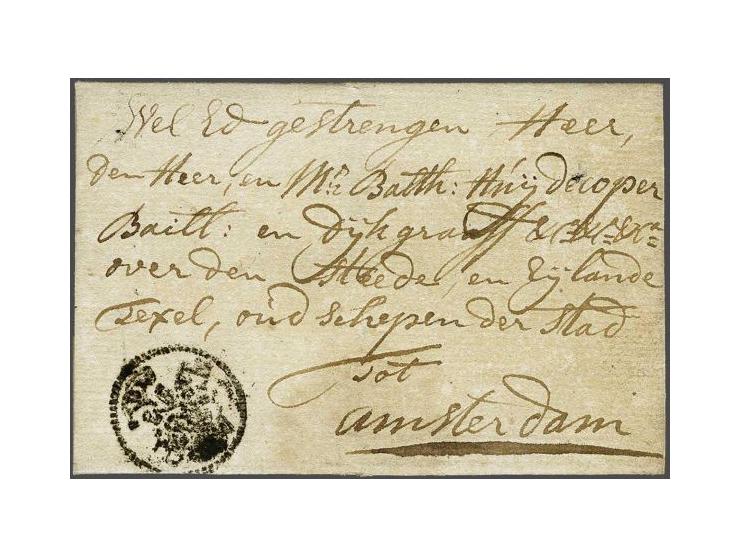 Wel Ed gestrengen Heer,
den Heer, en Mr: Balth: Húijdecoper
Baill: en Dijkgraaff &c:a &c:a &c:a
over den Steede, en Eijlande
Texel, oúd Schepen der Stad
tot
amsterdam